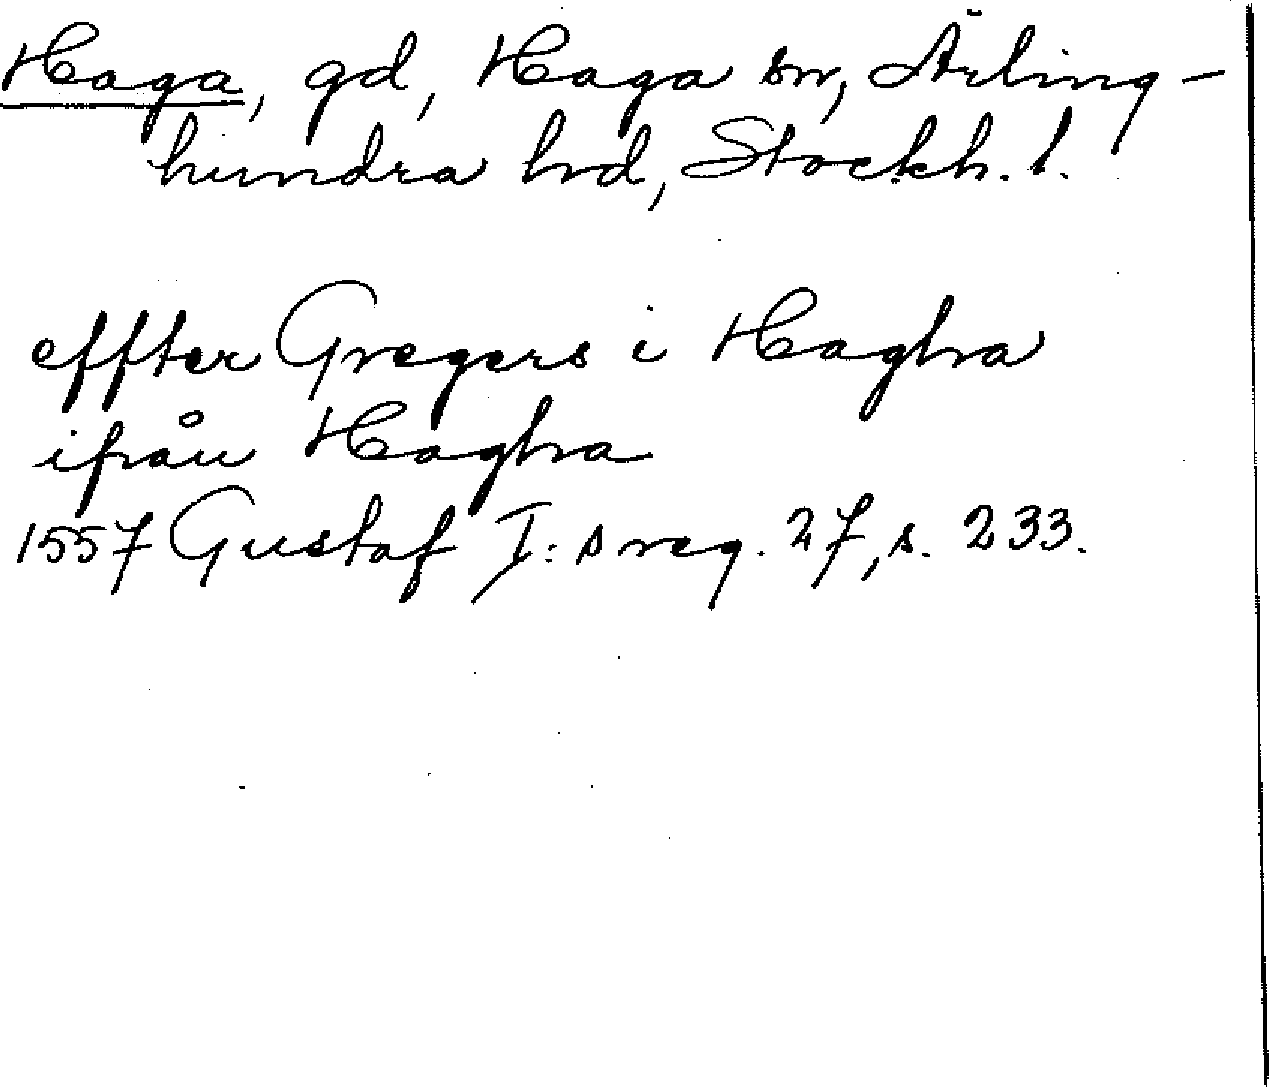 Haga, gd, Haga sn, Ärling-
hundra hd, Stockh. l.
effter Gregers i Haghra
ifrån Haghra
1557 Gustaf I:s reg. 27, s. 233.